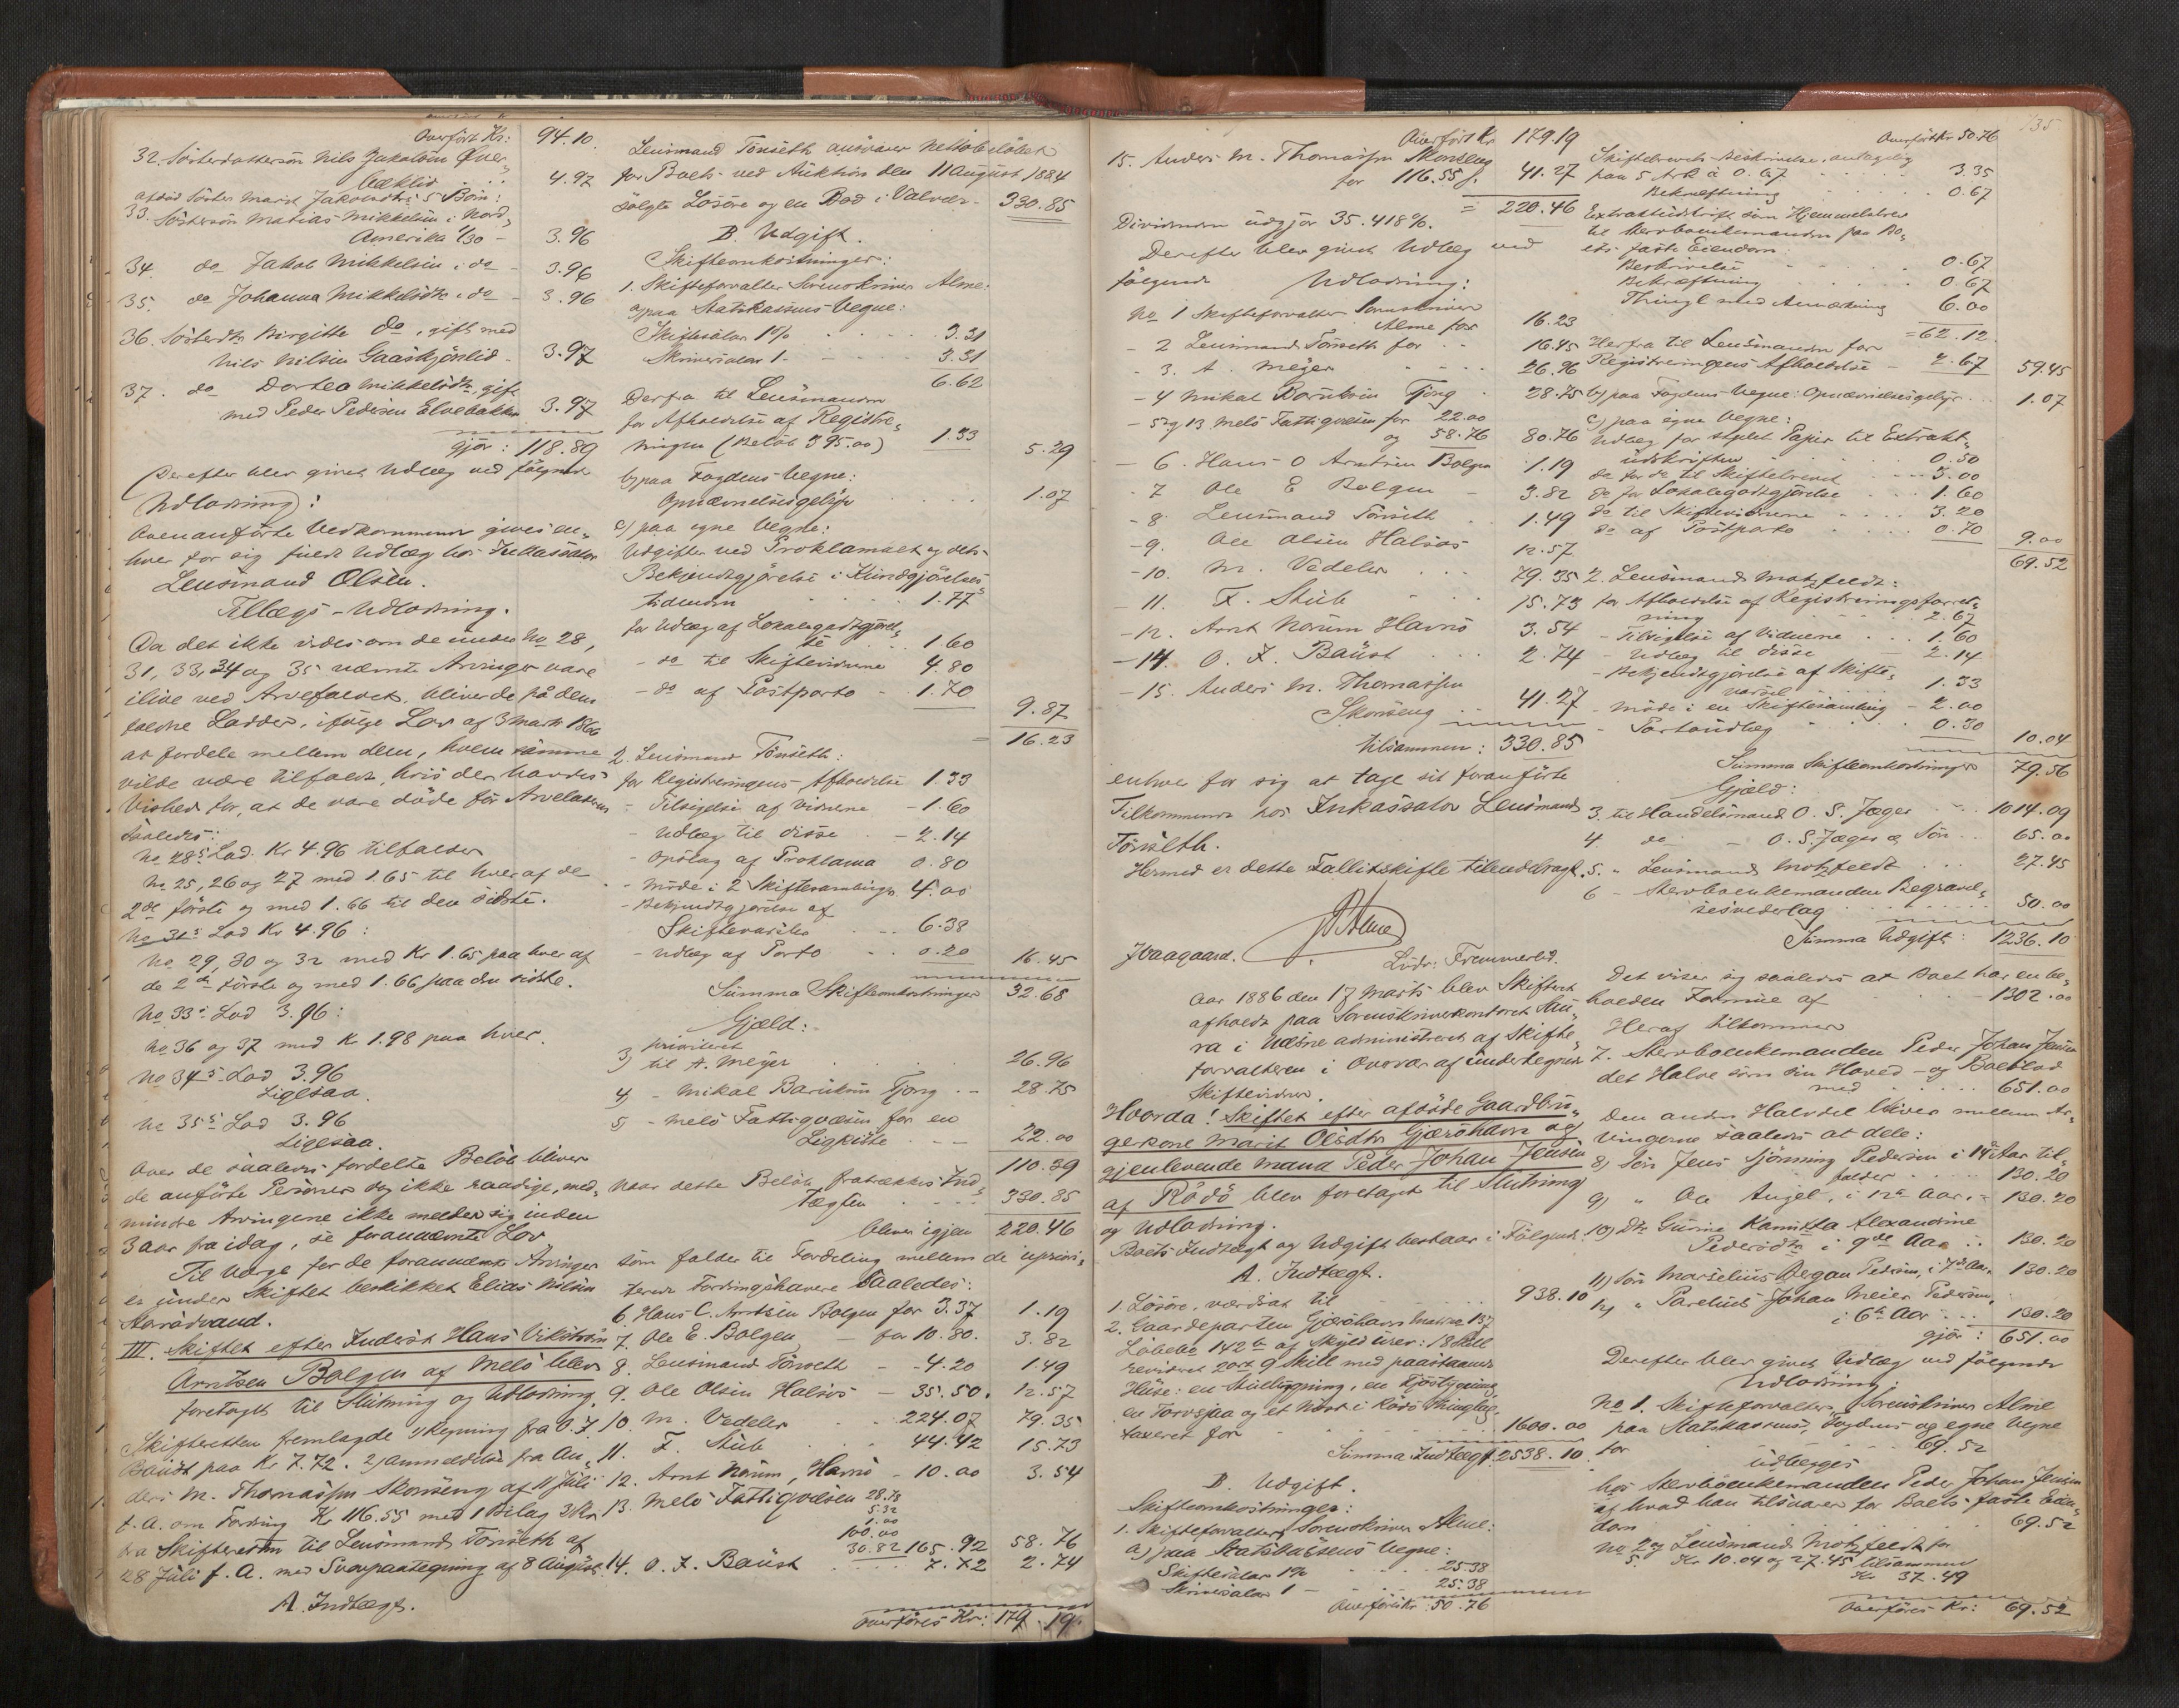 Overført Kr: 94.10.
32. Søsterdattersøn Nils Jakobsen Øver-
bæklid . . . 4.97
afdød Søster Marit Jakobsdtrs 5 Børn:
33. Søstersøn Matias Mikkelsen i Nord-
Amerika 1/30 - 3.96
34. do Jakob Mikkelsen i do - 3.96
35. do Johanna Mikkelsdtr i do - 3.96
36. Søsterdtr Birgitte do, gift med
Nils Nilsen Gaaskjønlid - 3.97
37. do Dortea Mikkelsdtr, gift
med Peder Pedersen Elvebakken 3.97
gjør: 118.89
(Derefter blev givet Udlæg ved følgende
Udlodning):
Ovenanførte Vedkommende gives en-
hver for sig fuldt Udlæg hos Inkassator
Lensmand Olsen.
Tillægs-Udlodning.
Da det ikke vides om de under No 28,
31, 33, 34 og 35 nævnte Arvinger vare
ilive ved Arvefaldet, bliver de på dem
faldne Lodder, ifølge Lov af 3 Marts 1866
at fordele mellem dem, hvem samme
vilde være tilfaldt, hvis der havdes
Vished for, at de vare døde før Arveladeren
saaledes:
No 28s Lod. Kr 4.96 tilfalder
No 25, 26 og 27 med 1.65 til hver af de
2de første og med 1.66 til den sidste.
No 31s Lod Kr 4.96:
No 29, 30 og 32 med Kr 1.65 paa hver af
de 2de første og med 1.66 paa den sidste.
No 33s Lod 3.96:
No 36 og 37 med Kr 1.98 paa hver.
No 34s Lod 3.96
Ligesaa.
No 35s Lod 3.96
Ligesaa.
Over de saaledes fordelte Beløb bliver
de anførte Personer dog ikke raadige, med-
mindre Arvingerne ikke melder sig inden
3 aar fra idag, se forannævnte Lov
Til Værge for de forannævnte Arvinger
er under Skiftet beskikket Elias Nilsen
Starådvand.
III. Skiftet efter Inderst Hans Vikstrøm
Arntzen Bolgen af Melø blev
foretaget til Slutning og Udlodning.
Skifteretten fremlagde 1) Regning fra O. F.
Baüst paa Kr 7.72. 2) Anmeldelse fra An-
ders M. Thomassen Skonseng af 11 Juli
f. A. om Fordring Kr 116.55 med 1 Bilag 3)
fra Skifteretten til Lensmand Tønseth af
28 Juli f. A. med Svarpaategning af 8 August
A. Indtægt.
Lensmand Tønseth ansvarer Nettobeløbet
for Boets ved Auktion den 11 August 1884
solgte Løsøre og en Bod i Valvær - 330.85
B. Udgift.
Skifteomkostninger:
1. Skifteforvalter Sorenskriver Alme:
a) paa Statskassens Vegne:
Skiftesalær 1% . . . 3.31
Skriversalær 1 - - - 3.31
6.62
Derfra til Lensmanden
for Afholdelse af Registre-
ringen (Beløb 395.00) 1.33 5.29
b) paa Fogdens Vegne:
Opnævnelsesgebyr . . . . 1.07
c) paa egne Vegne:
Udgifter ved Proklamaet og dets
Bekjendtgjørelse i Kundgjørelses-
tidenden . . . . 1.77
for Udlæg af Lokalegodtgjørel-
se . . 1.60
- do til Skiftevidnerne 4.80
- do af Postporto - 1.70
9.87
= 16.23
2. Lensmand Tønseth:
for Registreringens Afholdelse 1.33
- Tilsigelse af Vidnerne - 1.60
- Udlæg til disse . - 2.14
- Opslag af Proklama 0.80
- Møde i 2 Skiftesamlinger 4.00
- Bekjendtgjørelse af
Skiftevarsler . . 6.38
- Udlæg af Porto . . 0.20 16.45
Summa Skifteomkostninger 32.68
Gjæld:
prioriteret
3) til A. Meyer . . . 26.96
4) - Mikal Barüksen Tjong . - 28.75
5) - Melø Fattigvæsen for en
Ligkiste . - - 22.00
110.39
naar dette Beløb fratrækkes Ind-
tægten - - - 330.85
bliver igjen 220.46
som falder til Fordeling mellem de uprior-
terede Fordringshavere saaledes:
6. Hans C. Arntsen Bolgen for 3.37 1.19
7. Ole E. Bolgen - for 10.80. 3.82
8. Lensmand Tønseth - - 4.20 1.49
9. Ole Olsen Halsos - 35.50. 12.57
10. M. Vedeler . . 224.07 79.35
11. F. Stub . . 44.42 15.73
12. Arnt Norum, Havnø - 10.00 3.54
13. Melø Fattigvæsen 28.78
5.32
1.00
100.00
30.82 165.92 58.76
14. O. F. Baüst . . . 7.72 2.74
Overføres Kr: 179.19.
135
Overført Kr 179.19
15. Anders M. Thomassen Skonseng
for 116.55 . 41.27
= 220.46
Dividenden udgjør 35.418%.
Derefter blev givet Udlæg ved
følgende Udlodning:
No 1 Skifteforvalter Sorenskriver
Alme for 16.23
- 2 Lensmand Tønseth for . . 16.45
- 3. A. Meyer - - - - 26.96
- 4 Mikal Barüksen Tjong . 28.75
- 5 og 13 Melø Fattigvæsen for 22.00
og 58.76 80.76
- 6. Hans O Arntsen Bolgen 1.19
- 7 Ole E Bolgen - 3.82
- 8. Lensmand Tønseth . . 1.49
- 9. Ole Olsen Halsos 12.57
- 10. M. Vedeler . . . 79.35
- 11. F. Stub . . . 15.73
- 12. Arnt Norum Havnø 3.54
- 14. O. F. Baüst . . . 2.74
- 15. Anders M. Thomassen
Skonseng . . 41.27
tilsammen: 330.85
enhver for sig at tage sit foranførte
Tilkommende hos Inkassator Lensmand
Tønseth.
Hermed er dette Fallitskifte tilendebragt.
Alme
J Vaagaard. Ludv: Fremmerlid.
Aar 1886 den 17 Marts blev Skifteret
afholdt paa Sorenskriverkontoret Hau-
ra i Næsne administreret af Skifte-
forvalteren i Overvær af undertegnede
Skiftevidner.
Hvorda! Skiftet efter afdøde Gaardbru-
gerkone Marit Olsdtr Gjærshavn og
gjenlevende Mand Peder Johan Jensen
af Rødø blev foretaget til Slutning
og Udlodning.
Boets Indtægt og Udgift bestaar i Følgende:
A. Indtægt.
1. Løsøre, værdsat til . . . 938.10
2. Gaardeparten Gjærshavn Matr No 137
Løbebo 142 b af Skyld urev: 18 Skill
revideret 2 ort 9 Skill med paastaaende
Huse: en Stuebygning, en Fjøsbygning,
en Torvsjaa og et Nøst i Rødø Thinglag
taxeret for . . . 1600.00
Summa Indtægt 2538.10
B. Udgift.
Skifteomkostninger:
1. Skifteforvalter Sorenskriver Alme:
a) paa Statskassens Vegne:
Skiftesalær 1% . . . 25.38
Skriversalær 1 - . . . 25.38
Overføres Kr 50.76
Overført Kr 50.76
Skiftebrevets Beskrivelse, antagelig
paa 5 Ark à 0.67 . . . . . 3.35
Bekræftning . . . . 0.67
Extraktudskrift som Hjemmelsbrev
til Sterboenkemanden paa Bo-
ets faste Eiendom:
Beskrivelse . . . . 0.67
Bekræftning . . . . 0.67
Thingl. med Anmærkning 6.00
= 62.12.
Herfra til Lensmanden for
Registreringens Afholdelse - 2.67 59.45
b) paa Fogdens Vegne: Opnævnelsesgebyr . . . 1.07
c) paa egne Vegne:
Udlæg for stplet Papir til Extrakt-
udskriften . . . 0.50
do for do til Skiftebrevet - - - 3.00
do for Lokalegodtgjørelse . . . 1.60
do til Skiftevidnerne . . . . 3.20
do af Postporto . . . 0.70
9.00
69.52
2. Lensmand Motzfeldt:
for Afholdelse af Registreringsforret-
ning . . . . 2.67
- Tilsigelse af Vidnerne . . . 1.60
- Udlæg til disse - 2.14
- Bekjendtgjørelse af Skifte-
varsel . . . . 1.33
- Møde i en Skiftesamling - 2.00
- Portoudlæg - - - 0.30
10.04
Summa Skifteomkostninger 79.56
Gjæld:
3. til Handelsmand O. S. Jæger . . . 1014.09
4. do - O. S. Jæger & Søn . . 65.00
5. " Lensmand Motzfeldt . . . 27.45
6 - Sterboenkemanden Begravel-
sesvederlag . . . . . 50.00
Summa Udgift: 1236.10
Det viser sig saaledes at Boet har en be-
holden Formue af . . . - 1302.00
Heraf tilkommer
7. Sterboenkemanden Peder Johan Jensen
det Halve som sin Hoved- og Boeslod
med . . . . 651.00
Den anden Halvdel bliver mellem Ar-
vingerne saaledes at dele:
8) Søn Jens Tjønning Pedersen i 14de Aar til-
falder . . . 130.20
9) " Ole Angel, i 12te Aar. - 130.20
10) Dtr Gurine Kamilla Alexandrine
Pedersdtr i 9de Aar . . 130.20
11) Søn Marselius Degan Pedersen, i 7de Aar. 130.20
12) " Parelius Johan Meier Pedersen,
i 6te Aar . . . 130.20
gjør: 651.00
Derefter blev givet Udlæg ved følgende
Udlodning:
No 1. Skifteforvalter Sorenskriver Alme
paa Statskassens, Fogdens og egne Vegne
for . . . 69.52
udlægges
hos Sterboenkemanden Peder Johan Jensen
af hvad han tilsvarer for Boets faste Eien-
dom . . . . . . 69.52
No 2 og 5. Lensmand Motzfeldt for
Kr 10.04 og 27.45 tilsammen
Kr 37.49
Overføres Kr: 69.52